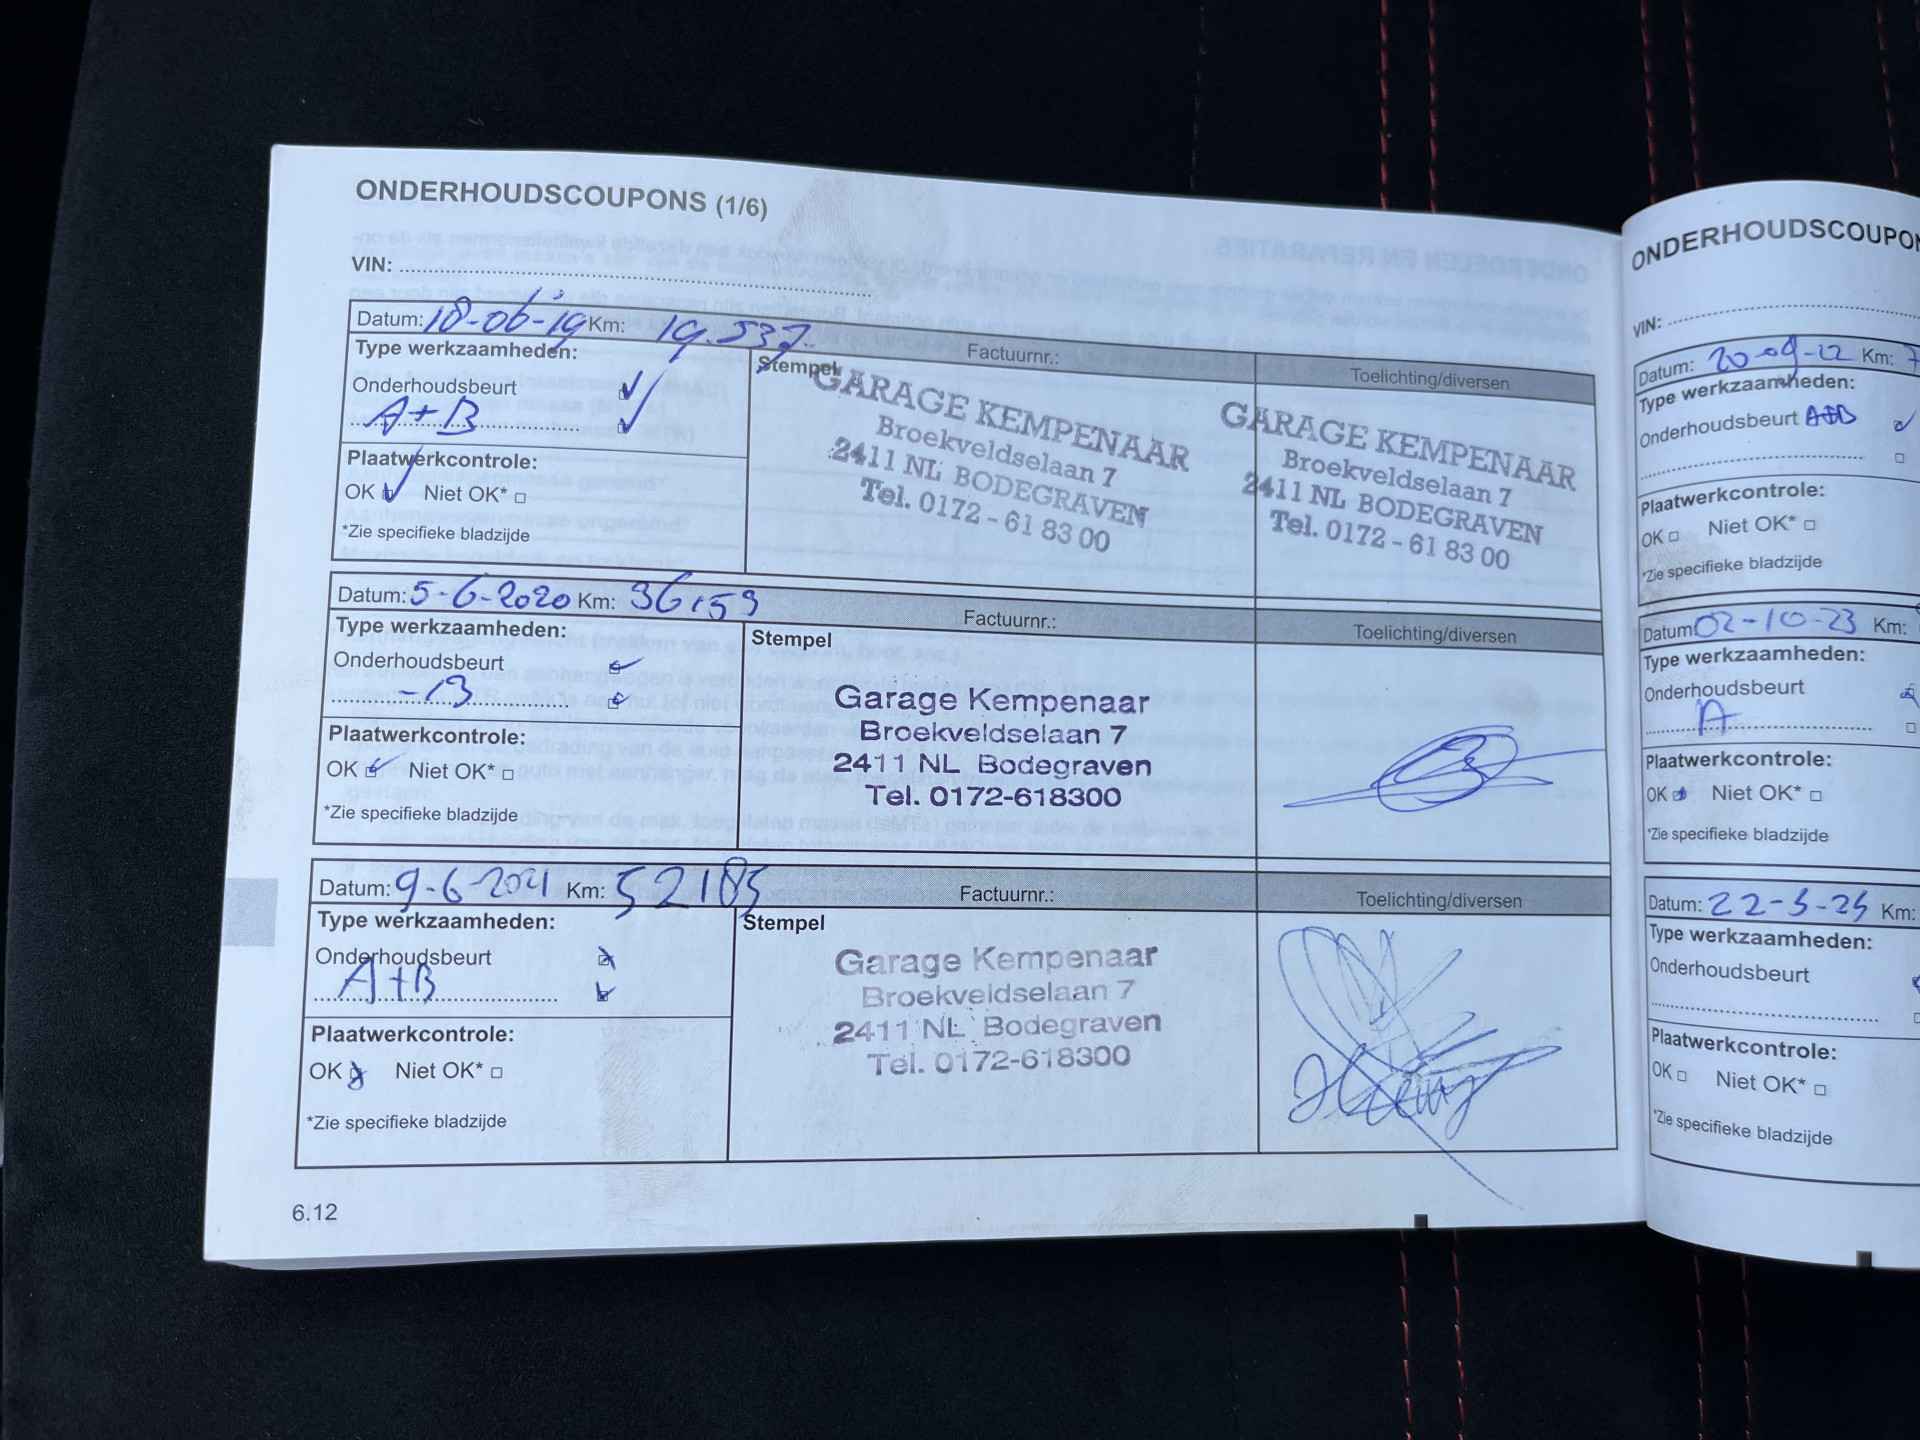 ONDERHOUDSCOUPONS (1/6)
VIN:
Datum: 18-06-19 Km: 19.537
Factuurnr.:
Toelichting/diversen
Type werkzaamheden:
Onderhoudsbeurt
A+B
Plaatwerkcontrole:
OK Niet OK*
*Zie specifieke bladzijde
Stempel
GARAGE KEMPENAAR
Broekveldselaan 7
2411 NL BODEGRAVEN
Tel. 0172 - 61 83 00
GARAGE KEMPENAAR
Broekveldselaan 7
2411 NL BODEGRAVEN
Tel. 0172 - 61 83 00
Datum: 5-6-2020 Km: 36153
Factuurnr.:
Toelichting/diversen
Type werkzaamheden:
Onderhoudsbeurt
Plaatwerkcontrole:
OK Niet OK*
*Zie specifieke bladzijde
Stempel
Garage Kempenaar
Broekveldselaan 7
2411 NL Bodegraven
Tel. 0172-618300
Datum: 9-6-2021 Km: 52185
Factuurnr.:
Toelichting/diversen
Type werkzaamheden:
Onderhoudsbeurt
A+B
Plaatwerkcontrole:
OK Niet OK*
*Zie specifieke bladzijde
Stempel
Garage Kempenaar
Broekveldselaan 7
2411 NL Bodegraven
Tel. 0172-618300
6.12
VIN:
Datum: 20-09-22 Km:
Type werkzaamheden:
Onderhoudsbeurt A+B
Plaatwerkcontrole:
OK Niet OK*
*Zie specifieke bladzijde
Datum: 02-10-23 Km:
Type werkzaamheden:
Onderhoudsbeurt
A
Plaatwerkcontrole:
OK Niet OK*
*Zie specifieke bladzijde
Datum: Km:
Type werkzaamheden:
Onderhoudsbeurt
Plaatwerkcontrole:
OK Niet OK*
*Zie specifieke bladzijde